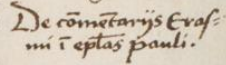 De com̄entarijs Eras-
mi ī ep̄las pauli.